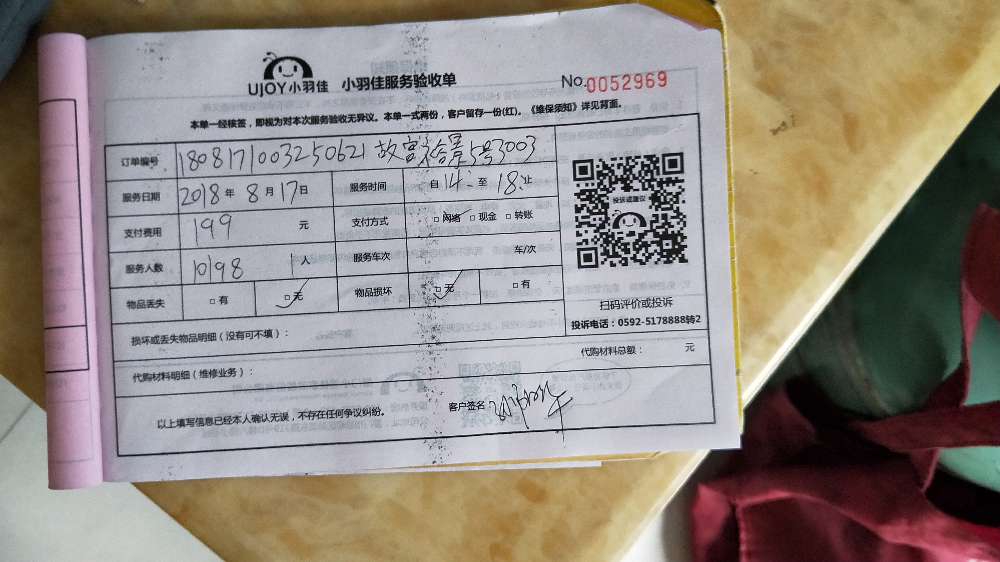 UJOY小羽佳 小羽佳服务验收单 No.0052969
本单一经核签，即视为对本次服务验收无异议。本单一式两份，客户留存一份(红)。《维保须知》详见背面。
订单编号 1808171003250621 故宫裕景5号3003
服务日期 2018年8月17日 服务时间 自14:至18:止
支付费用 199 元 支付方式 □网络 □现金 □转账
服务人数 10198 1人 服务车次 车/次
物品丢失 □有 □无 物品损坏 □无 □有
投诉或建议
扫码评价或投诉
投诉电话：0592-5178888转2
损坏或丢失物品明细（没有可不填）：
代购材料明细（维修业务）： 代购材料总额： 元
以上填写信息已经本人确认无误，不存在任何争议纠纷。 客户签名：